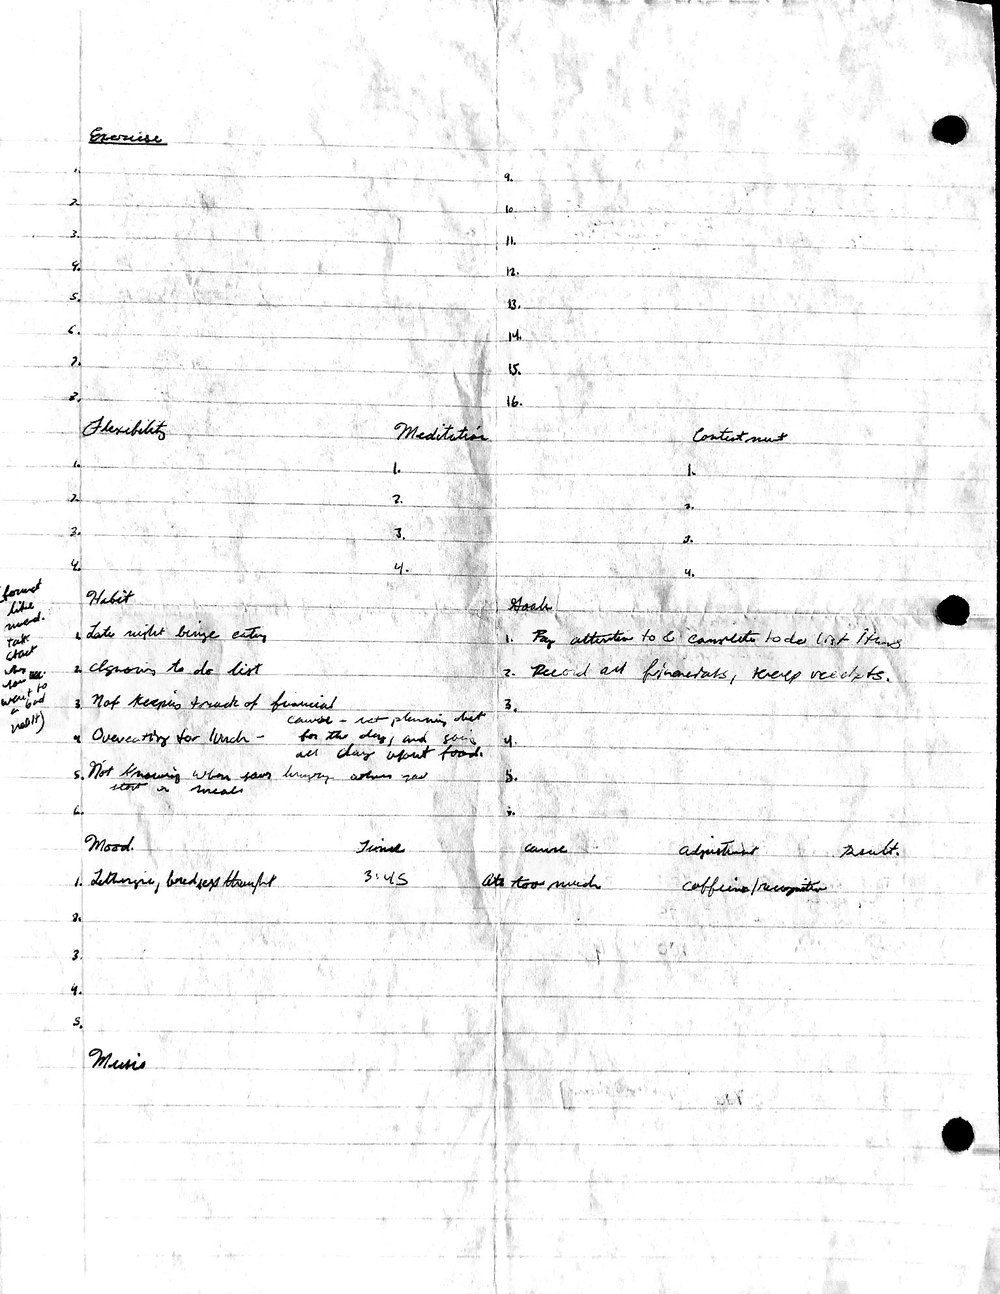 Exercise
1.
2.
3.
4.
5.
6.
7.
8.
9.
10.
11.
12.
13.
14.
15.
16.
Flexibility Meditation Contentment
1. 1. 1.
2. 2. 2.
3. 3. 3.
4. 4. 4.
(format
like
mood.
Talk
about
why
you
went to
a bad
habit)
Habit
1. Late night binge eating
2. Ignoring to do list
3. Not keeping track of financial
4. Overeating for lunch - cause - not planning diet
for the day, and
all day about food.
5. Not knowing when your hungry when you
start a meal
6.
Goals
1. Pay attention to & complete to do list items
2. Record all financials, keep receipts.
3.
4.
5.
Mood. Time cause adjustment Result.
1. Lethargic, thought 3:45 Ate too much caffeine/recognition
2.
3.
4.
5.
Music